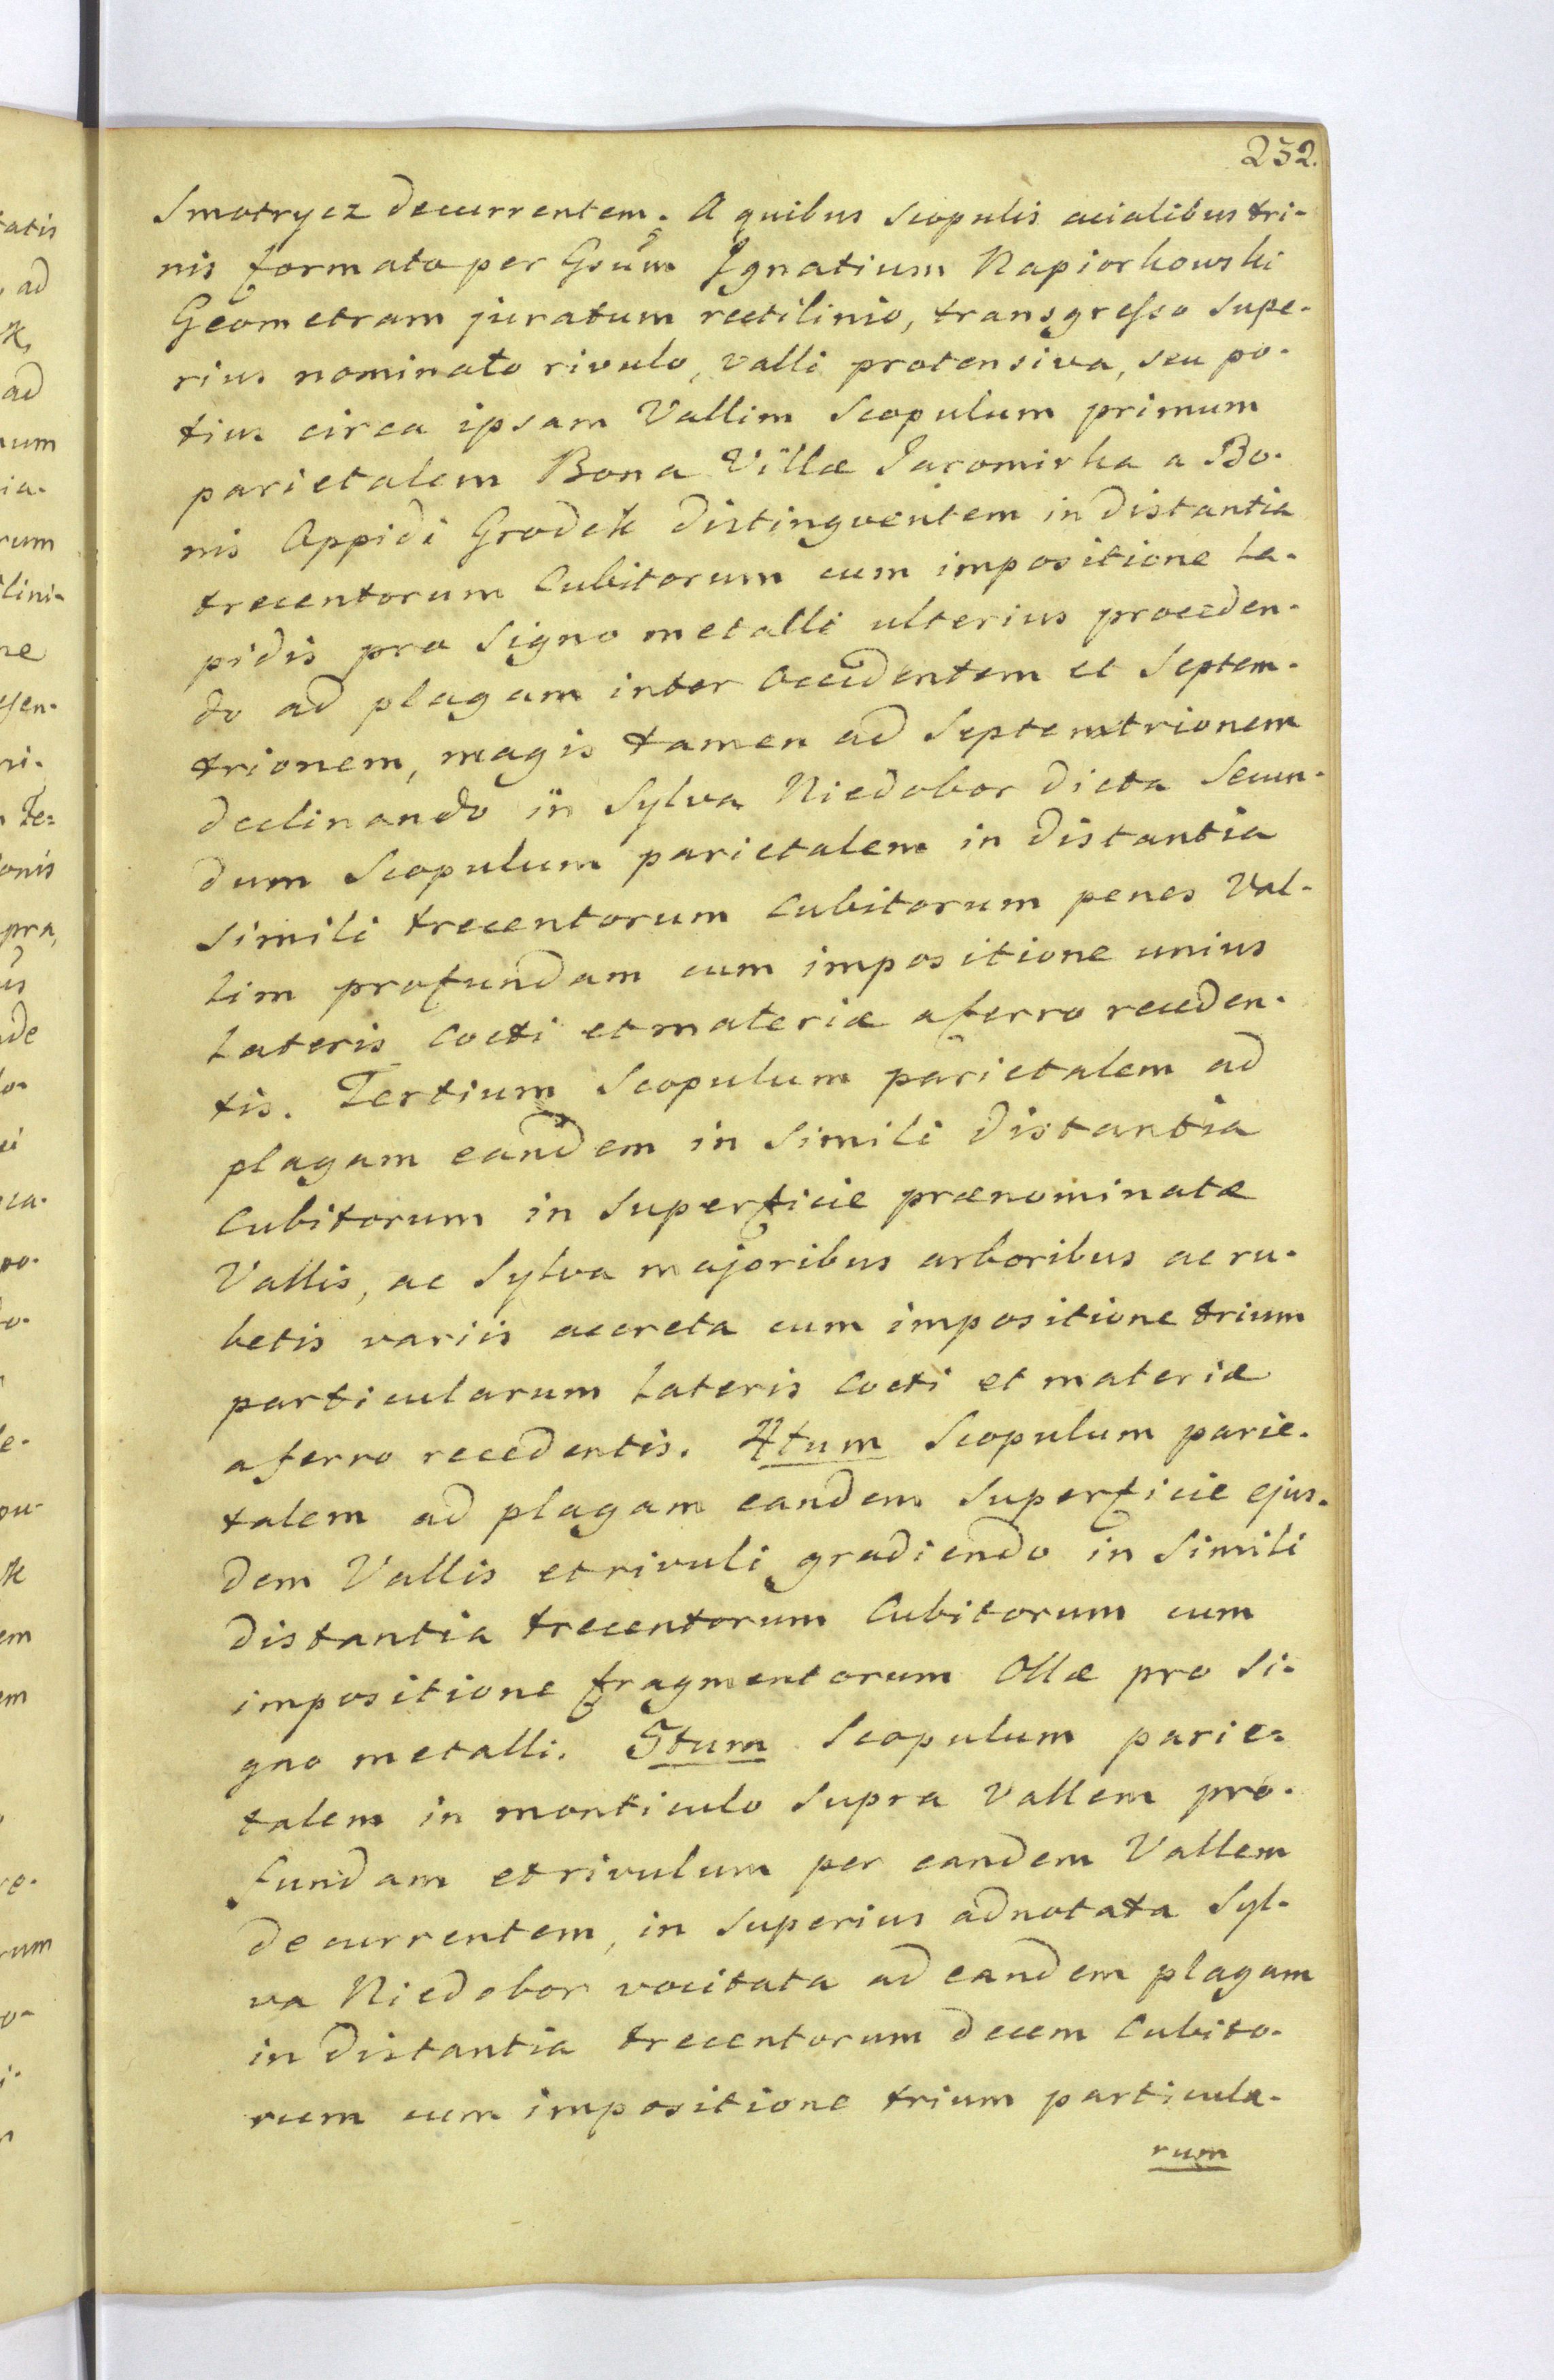 232.
Smotrycz decurrentem. A quibus Scopulis acialibus tri-
nis formato per Gsum Ignatium Napiorkowski
Geometram juratum rectilinio, transgresso supe-
rius nominato rivulo, valli protensiva, seu po-
tius circa ipsam Vallim Scopulum primum
parietalem Bona Villæ Jaromirka a Bo-
nis Oppidi Grodek distingventem in distantia
trecentorum Cubitorum cum impositione La-
pidis pro Signo metalli ulterius proceden-
do ad plagam inter Occidentem et Septem-
trionem, magis tamen ad Septemtrionem
declinando in Sylva Niedobor dicta Secun-
dum Scopulum parietalem in distantia
Simili trecentorum Cubitorum penes Val-
lim profundam cum impositione unius
Lateris Cocti et materiæ a ferro receden-
tis. Tertium Scopulum parietalem ad
plagam eandem in Simili distantia
Cubitorum in Superficie prænominatæ
Vallis, ac Sylva majoribus arboribus ac ru-
betis variis accreta cum impositione trium
particularum Lateris Cocti et materiæ
a ferro recedentis. 4tum Scopulum parie-
talem ad plagam eandem Superficie ejus-
dem Vallis et rivuli gradiendo in Simili
distantia trecentorum Cubitorum cum
impositione fragmentorum Ollæ pro Si-
gno metalli. 5tum Scopulum parie-
talem in monticulo Supra Vallem pro-
fundam et rivulum per eandem Vallem
decurrentem, in Superius adnotata Syl-
va Niedobor vocitata ad eandem plagam
in distantia trecentorum decem Cubito-
rum cum impositione trium particula-
rum